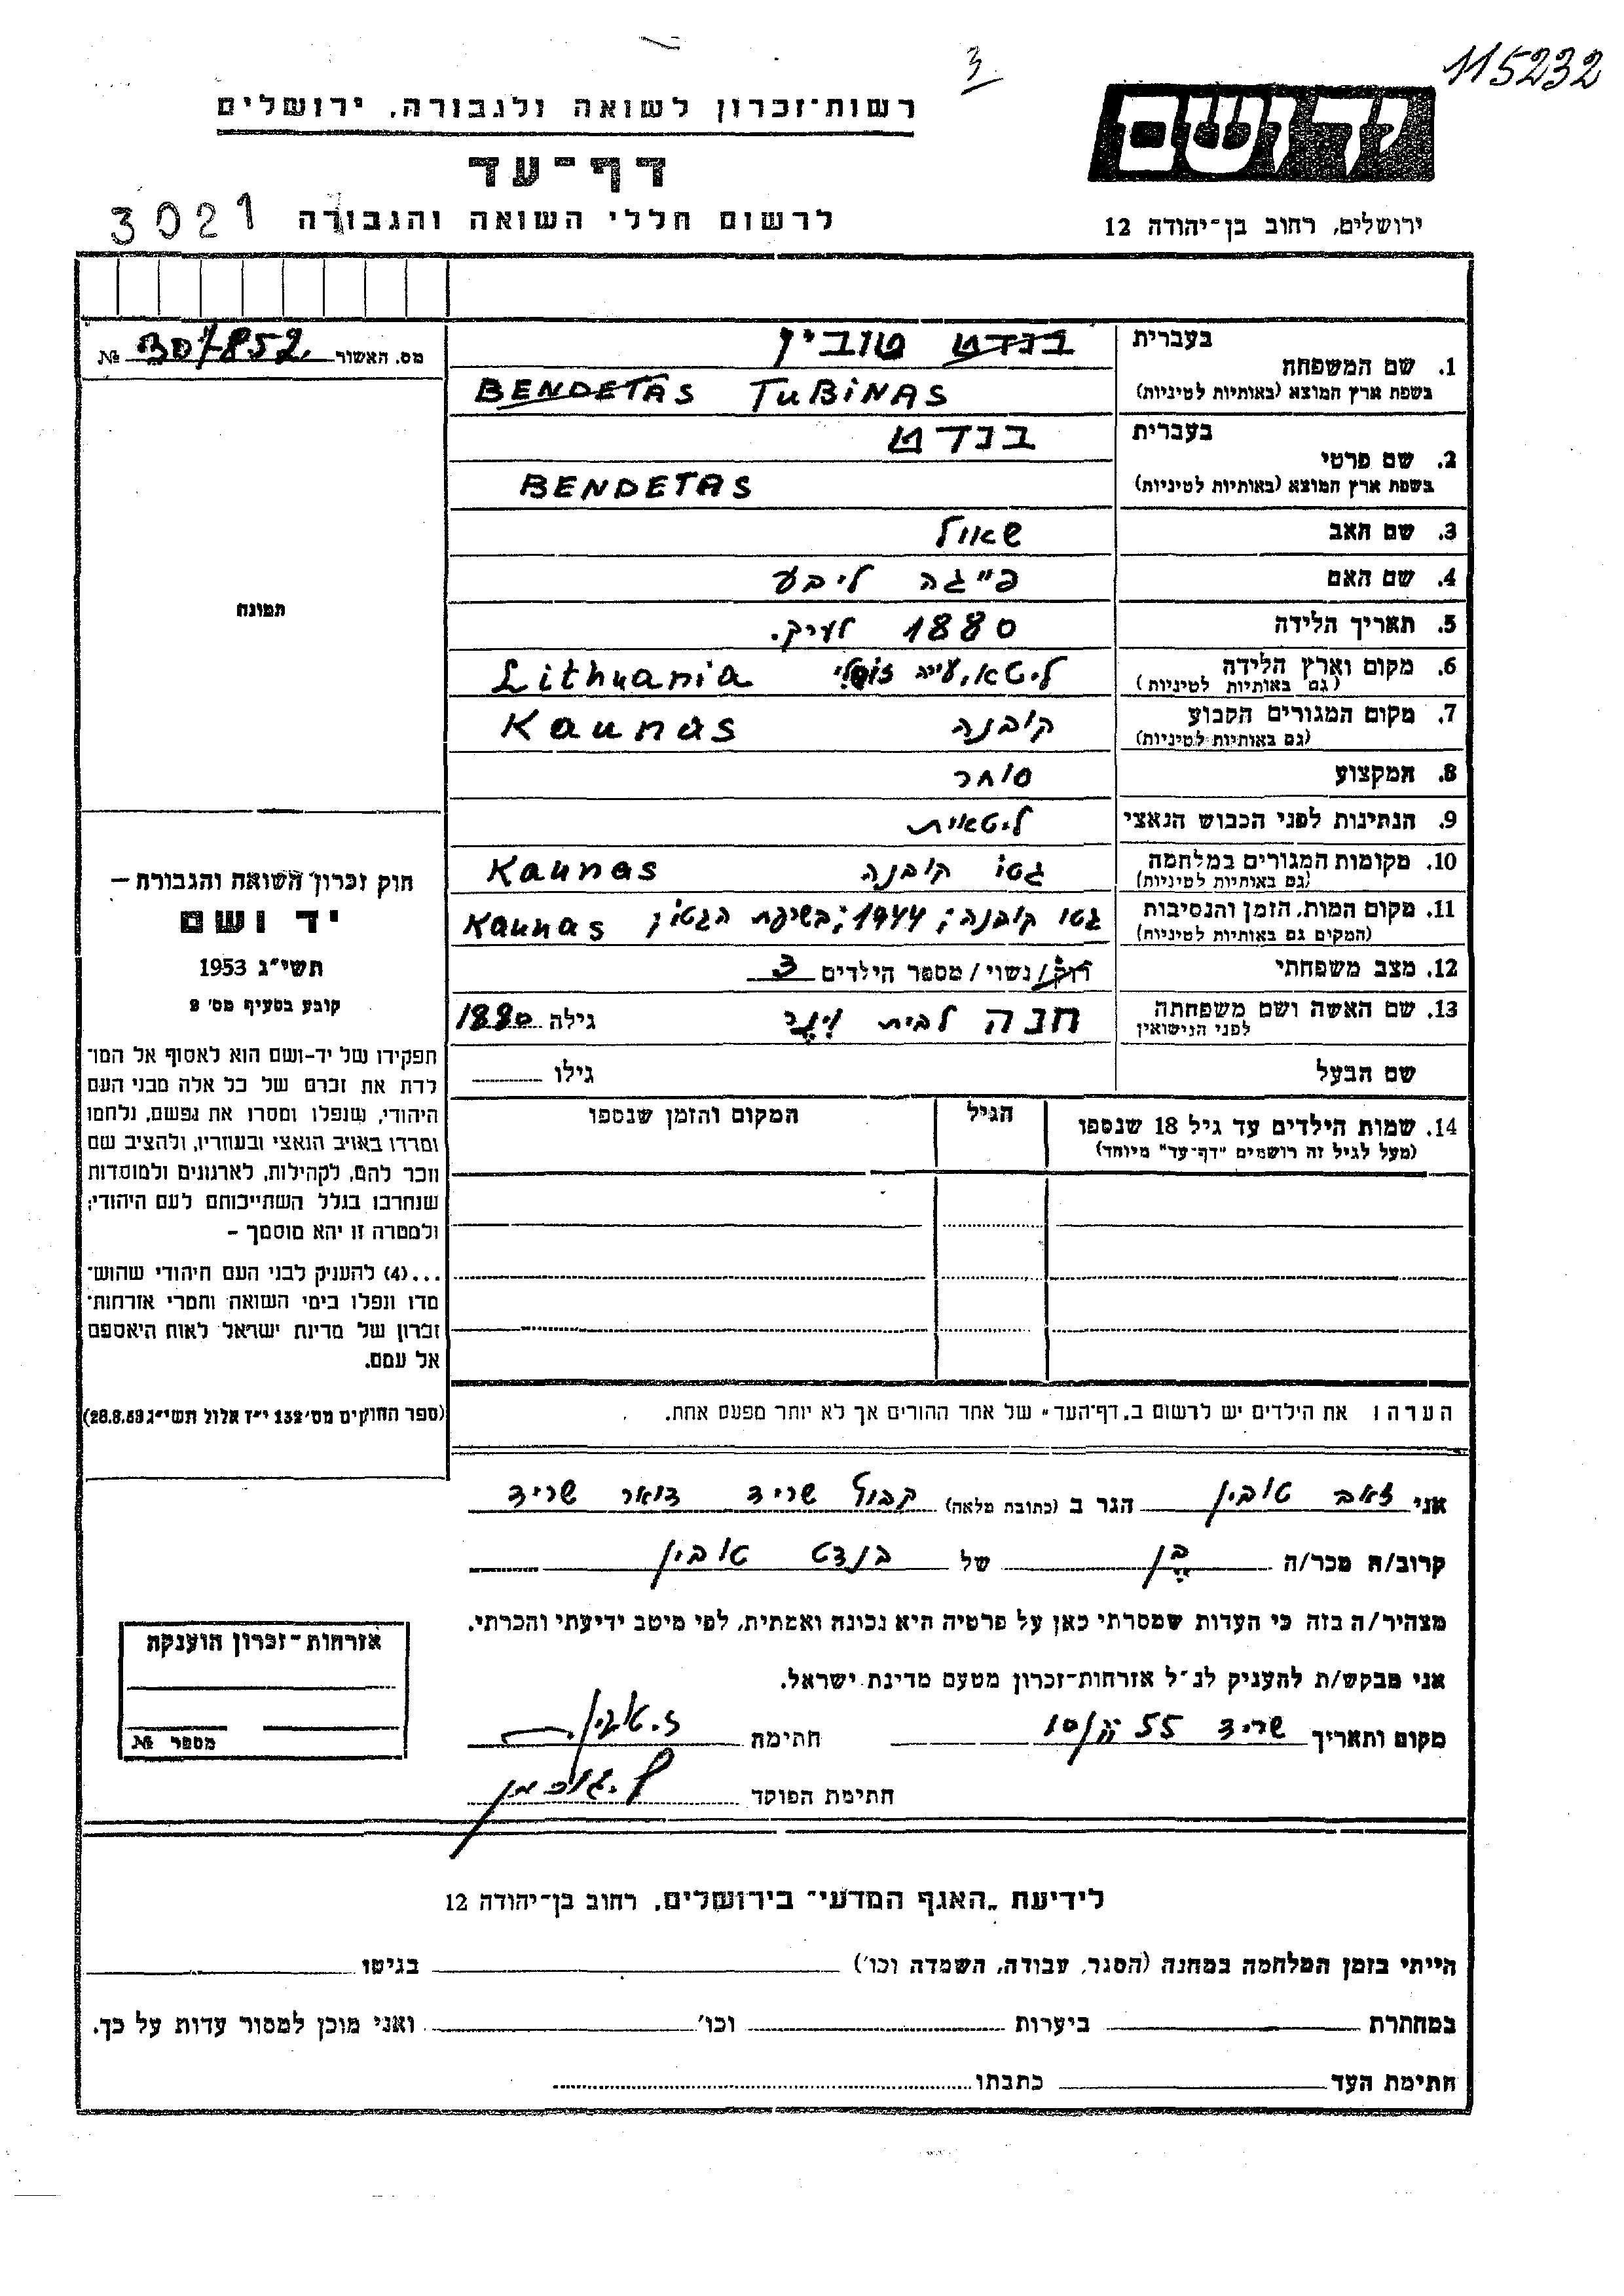 115232
3
יד ושם
רשות-זכרון לשואה ולגבורה, ירושלים
דף-עד
לרשום חללי השואה והגבורה
3021
ירושלים, רחוב בן-יהודה 12
מס. האשור 307852 №
תמונה
1. שם המשפחה
בעברית בנדט טובין
בשפת ארץ המוצא (באותיות לטיניות) BENDETAS TUBINAS
2. שם פרטי
בעברית בנדט
בשפת ארץ המוצא (באותיות לטיניות) BENDETAS
3. שם האב שאול
4. שם האם פייגה ליבע
5. תאריך הלידה 1880 לערך.
6. מקום וארץ הלידה ליטא, עייר Lithuania
(גם באותיות לטיניות)
7. מקום המגורים הקבוע קובנה Kaunas
(גם באותיות לטיניות)
8. המקצוע סוחר
9. הנתינות לפני הכבוש הנאצי ליטאית
10. מקומות המגורים במלחמה גטו קובנה Kaunas
(גם באותיות לטיניות)
11. מקום המות, הזמן והנסיבות גטו קובנה; 1944; בשריפת הגטו; Kaunas
(המקום גם באותיות לטיניות)
12. מצב משפחתי רוק/נשוי/מספר הילדים 3
13. שם האשה ושם משפחתה חנה לבית גילה 1880
לפני הנישואין
שם הבעל גילו
14. שמות הילדים עד גיל 18 שנספו הגיל המקום והזמן שנספו
(מעל לגיל זה רושמים "דף-עד" מיוחד)
הערה: את הילדים יש לרשום ב"דף-העד" של אחד ההורים אך לא יותר מפעם אחת.
חוק זכרון השואה והגבורה –
יד ושם
תשי"ג 1953
קובע בסעיף מס' 2
תפקידו של יד-ושם הוא לאסוף אל המו־
לדת את זכרם של כל אלה מבני העם
היהודי, שנפלו ומסרו את נפשם, נלחמו
ומרדו באויב הנאצי ובעוזריו, ולהציב שם
וזכר להם, לקהילות, לארגונים ולמוסדות
שנחרבו בגלל השתייכותם לעם היהודי;
ולמטרה זו יהא מוסמך –
...(4) להעניק לבני העם היהודי שהוש־
מדו ונפלו בימי השואה והמרי אזרחות־
זכרון של מדינת ישראל לאות היאספם
אל עמם.
(ספר החוקים מס' 132 י"ז אלול תשי"ג 28.8.53)
אני זאב טובין הגר ב (כתובת מלאה) קבוץ שריד דואר שריד
קרוב/ה מכר/ה בן של בנדט טובין
מצהיר/ה בזה כי העדות שמסרתי כאן על פרטיה היא נכונה ואמתית, לפי מיטב ידיעתי והכרתי.
אני מבקש/ת להעניק לנ"ל אזרחות-זכרון מטעם מדינת ישראל.
מקום ותאריך שריד חתימה ז. טובין
חתימת הפוקד
אזרחות-זכרון הוענקה
מספר №
לידיעת "האגף המדעי" בירושלים, רחוב בן-יהודה 12
הייתי בזמן המלחמה במחנה (הסגר, עבודה, השמדה וכו') בגיטו
במחתרת ביערות וכו' ואני מוכן למסור עדות על כך.
חתימת העד כתבתו